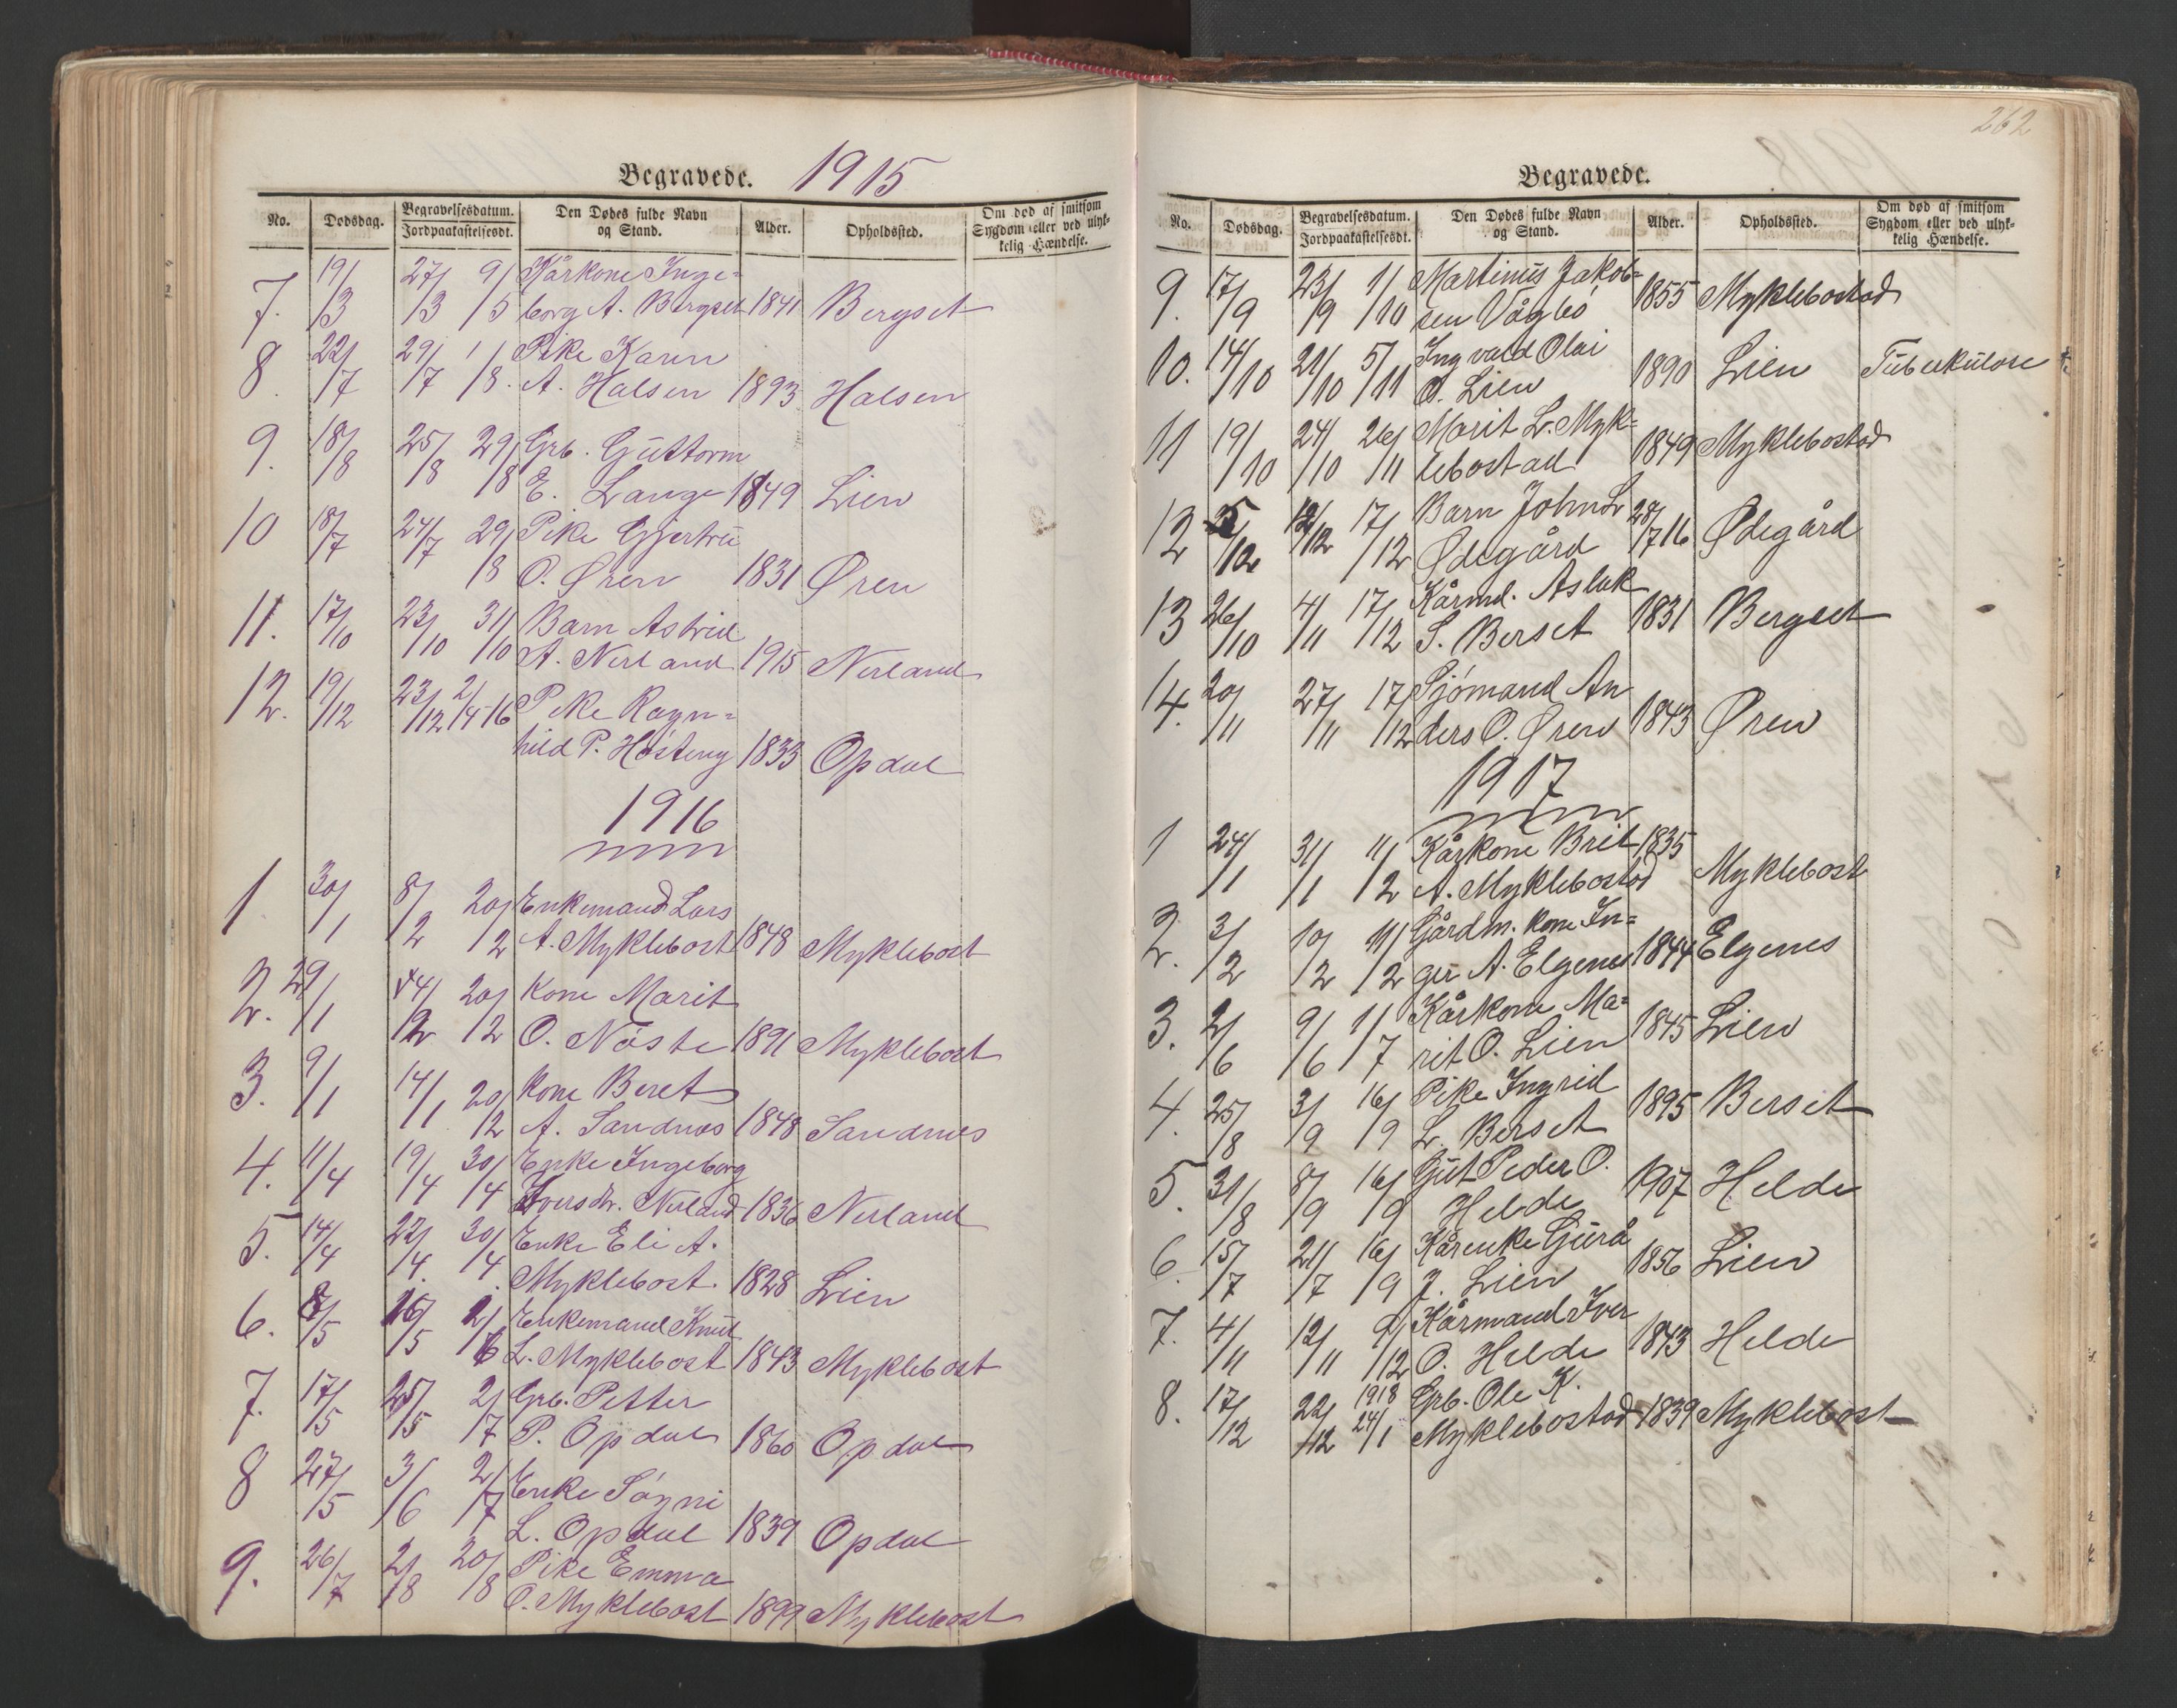 Begravede. 1915
No. Dødsdag. Begravelsesdatum. Jordpaakastelsesdt. Den Dødes fulde Navn og Stand. Alder. Opholdssted. Om død af smitsom Sygdom eller ved ulykkelig Hændelse.
7. 19/3 27/3 9/5 Kårkone Inge=
borg A. Bergset 1841 Bergset
8. 22/7 29/7 1/8. Pike Karen
A. Halsen 1893 Halsen
9. 18/8 25/8 29/8 Grb. Guttorm
E. Lange 1849 Lien
10 18/7 24/7 29/8 Pike Gjertru
O. Øren 1831 Øren
11. 17/10 23/10 31/10 Barn Astrid
A. Nerland 1915 Nerland
12. 19/12 23/12 2/4-16 Pike Ragn=
hild P. Høsteng 1833 Opdal
1916
1 30/1 8/2 20/2 Enkemand Lars
A. Myklebost 1848 Myklebost
2. 29/1 4/2 20/2 Kone Marit
O. Nøste 1891 Myklebost
3. 9/1 14/1 20/2 Kone Beret
A. Sandnes 1848 Sandnes
4. 11/4 19/4 30/4 Enke Ingeborg
Iversdr. Nerland 1836 Nerland
5. 14/4 22/4. 30/4 Enke Eli A.
Myklebost. 1828 Lien
6. 8/5 16/5 2/6 Enkemand Knut
L. Myklebost 1843 Myklebost
7. 17/5 25/5 2/7 Grb. Petter
P. Opdal 1860 Opdal
8 27/5 3/6 2/7 Enke Søgni
L. Opdal 1839 Opdal
9. 26/7 2/8 20/8 Pike Emma
O. Myklebost 1899 Myklebost
262
Begravede.
No. Dødsdag. Begravelsesdatum. Jordpaakastelsesdt. Den Dødes fulde Navn og Stand. Alder. Opholdssted. Om død af smitsom Sygdom eller ved ulykkelig Hændelse.
9. 17/9 23/9 1/10 Martinus Jakob=
sen Vågbø 1855 Myklebostad
10. 14/10 21/10 5/11 Ingvald Olai
O. Lien 1890 Lien Tuberkulose
11 19/10 24/10 26/11 Marit L. Myk=
lebostad 1849 Myklebostad
12 5/12 12/12 17/12 Barn John L
Ødegård 28/7 16 Ødegård
13 26/10 4/11 17/12 Kårmd. Aslak
S. Berset 1831 Bergset
14. 20/11 27/11 17/12 Sjømand An
ders O. Øren 1843 Øren
1917
1 24/1 31/1 11/2 Kårkone Brit 1835
A. Myklebostad Myklebost
2. 3/2 10/2 11/2 Gårdm. kone In=
ger A. Elgenes 1844 Elgenes
3. 2/6 9/6 1/7 Kårkone Ma=
rit O. Lien 1845 Lien
4. 25/8 3/9 16/9 Pike Ingrid
L. Berset 1895 Berset
5. 31/8 8/9 16/9 Gut Peder O.
Helde 1907 Helde
6. 15/7 21/7 16/9 Kårenke Gurå
J. Lien 1856 Lien
7. 4/11 12/11 9/12 Kårmand Iver
O. Helde 1843 Helde
8. 17/12 22/12 1918 24/1 Grb. Ole K.
Myklebostad 1839 Myklebost